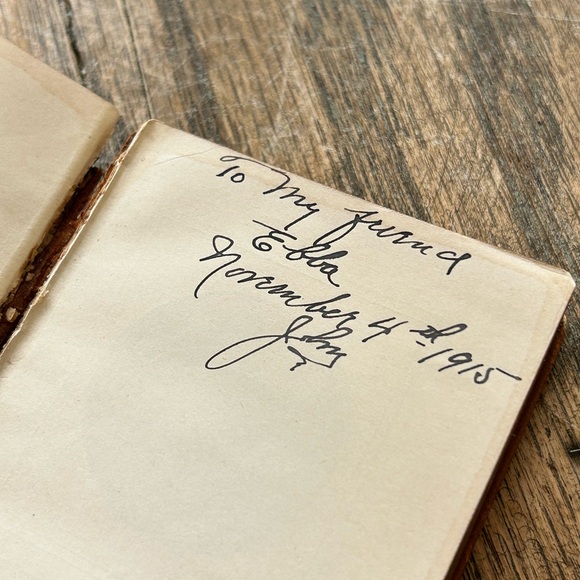 To My friend
Ebba
November 4th 1915
John